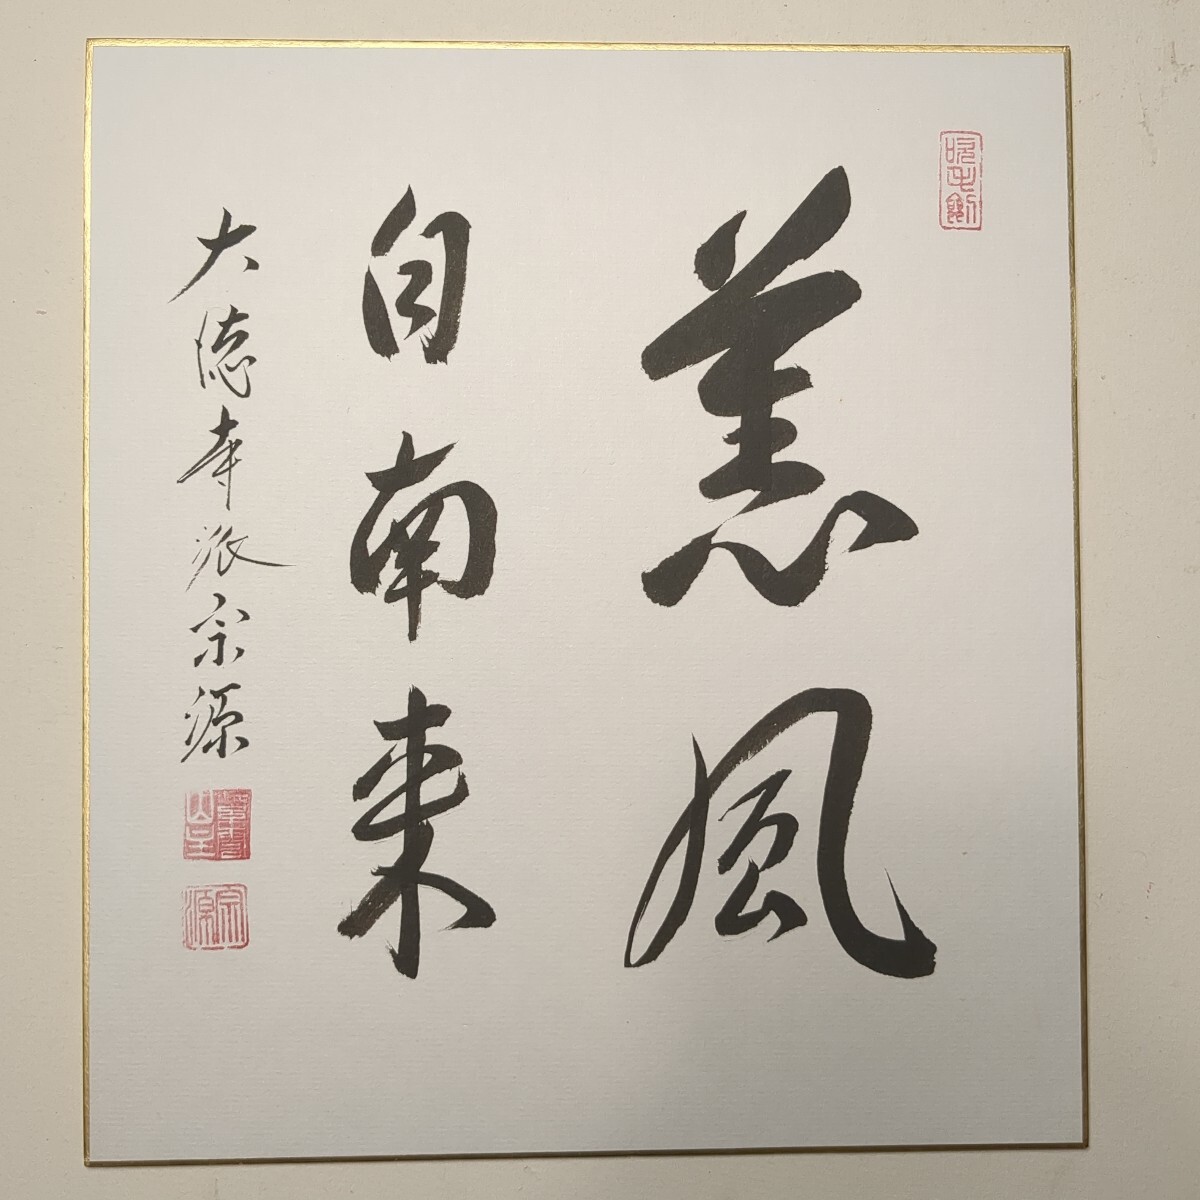 薫風
自南来
大徳寺派宗源
宗源